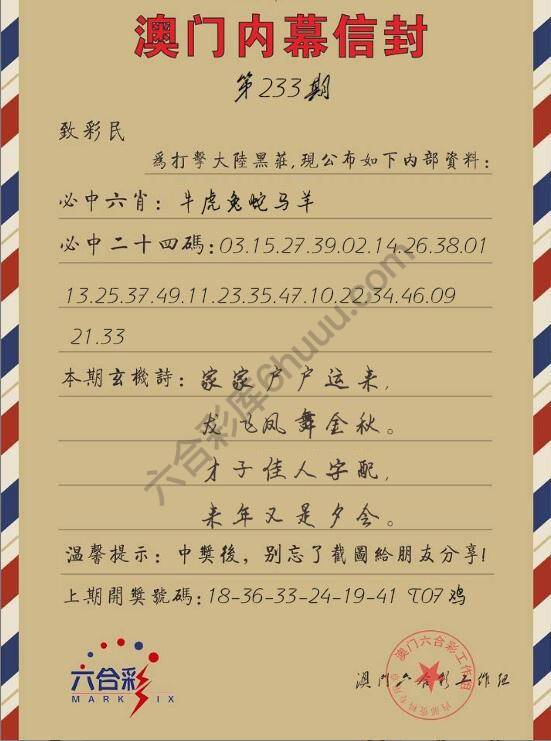 澳门内幕信封
第233期
致彩民
為打擊大陸黑莊,現公布如下内部資料:
必中六肖: 牛虎兔蛇马羊
必中二十四碼:03.15.27.39.02.14.26.38.01
13.25.37.49.11.23.35.47.10.22.34.46.09
21.33
本期玄機詩: 家家户户运来,
龙飞凤舞金秋。
才子佳人字配,
来年又是夕会。
温馨提示: 中獎後, 别忘了截圖給朋友分享!
上期開獎號碼:18-36-33-24-19-41 T07鸡
六合彩
MARK SIX
澳门六合彩工作组
澳门六合彩工作组
六合彩库6huuu.com